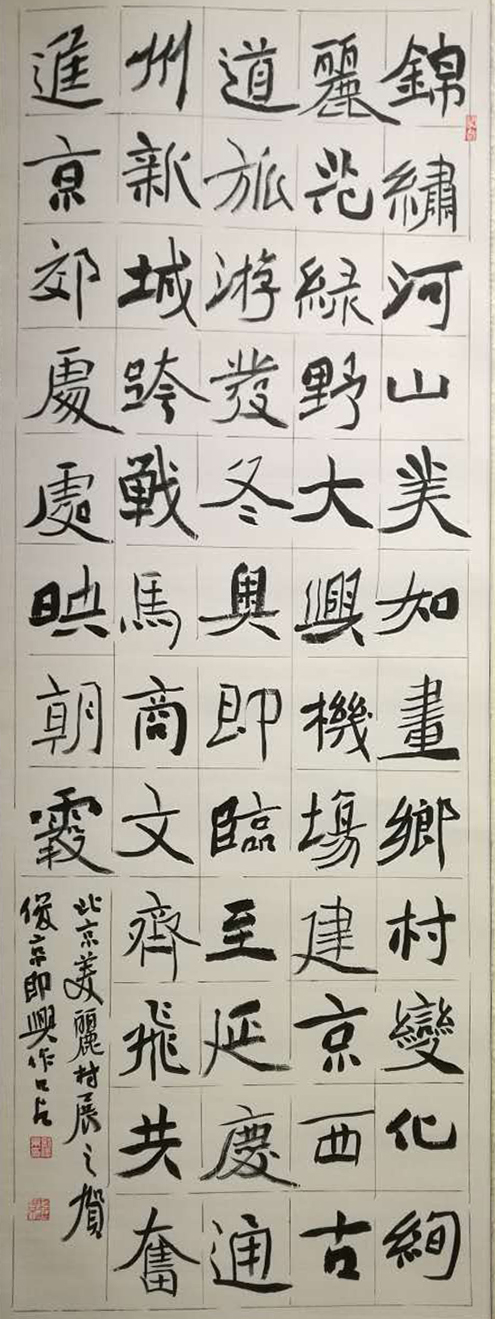 錦繡河山美如畫鄉村變化絢
麗花綠野大興機場建京西古
道旅游發冬奥即臨至延慶通
州新城跨戰馬商文齊飛共奮
進京郊處處映朝霞
北京美麗村展之賀
俊京即興作口占